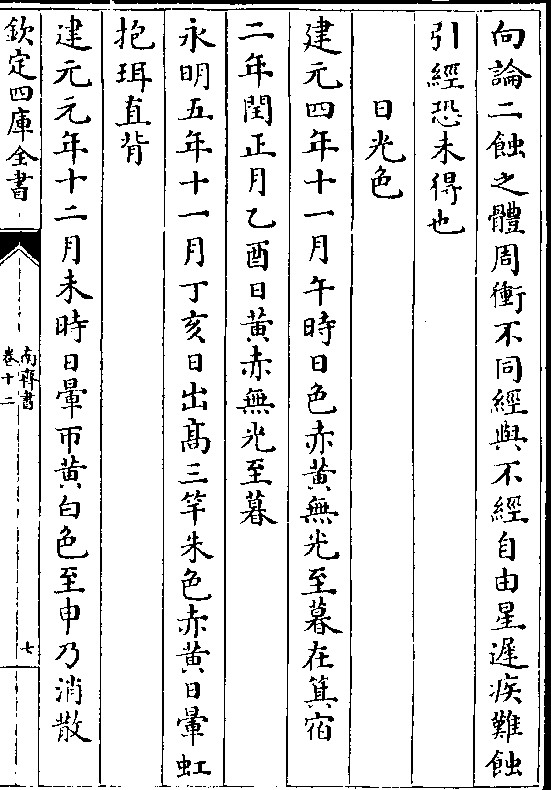 向論二蝕之體周衝不同經與不經自由星遲疾難蝕
引經恐未得也
日光色
建元四年十一月午時日色赤黄無光至暮在箕宿
二年閏正月乙酉日黄赤無光至暮
永明五年十一月丁亥日出髙三竿朱色赤黄日暈虹
抱珥直背
建元元年十二月未時日暈帀黄白色至申乃消散
欽定四庫全書
南齊書
卷十二
七